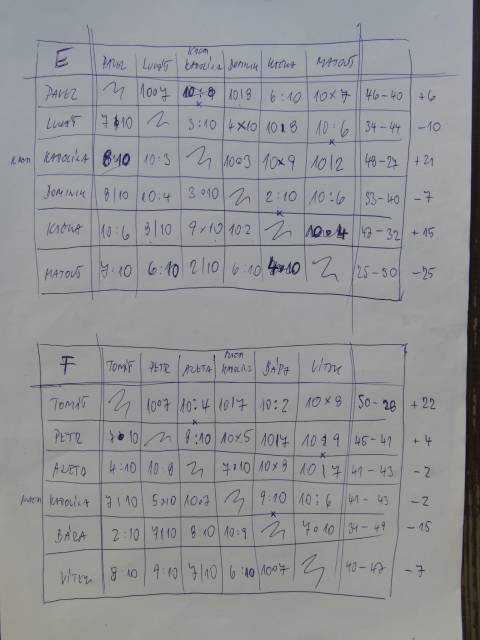 E PAVEL LUKÁŠ KAROLÍNA DOMINIK MATOUŠ
PAVEL 10:7 10:8 10:8 6:10 10:7 46-40 +6
LUKÁŠ 7:10 3:10 4:10 10:8 10:6 34-44 -10
KAROLÍNA 8:10 10:3 10:3 10:9 10:2 48-27 +21
DOMINIK 8:10 10:4 3:10 2:10 10:6 33-40 -7
10:6 8:10 9:10 10:2 10:4 47-32 +15
MATOUŠ 7:10 6:10 2:10 6:10 4:10 25-50 -25
F TOMÁŠ PETR KAROLÍNA BÁRA VÍTEK
TOMÁŠ 10:7 10:4 10:7 10:2 10:8 50-28 +22
PETR 7:10 8:10 10:5 10:7 10:9 45-41 +4
4:10 10:8 7:10 10:8 10:7 41-43 -2
KAROLÍNA 7:10 5:10 10:7 9:10 10:6 41-43 -2
BÁRA 2:10 7:10 8:10 10:9 7:10 34-49 -15
VÍTEK 8:10 9:10 7:10 6:10 10:7 40-47 -7